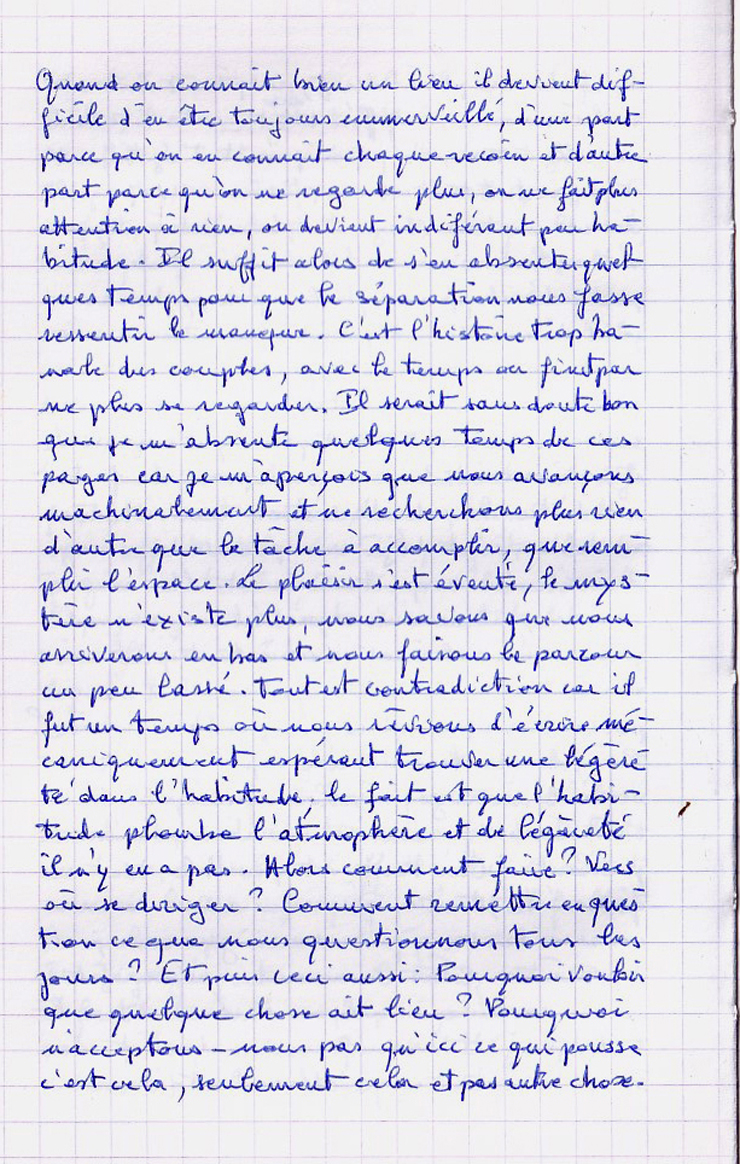 Quand on connait bien un lieu il devient dif-
ficile d'en être toujours emmerveillé, d'une part
parce qu'on en connait chaque recoin et d'autre
part parce qu'on ne regarde plus, on ne fait plus
attention à rien, on devient indiférant par ha-
bitude. Il suffit alors de s'en absenter quel
ques temps pour que la séparation nous fasse
ressentir le manque. C'est l'histoire trop ba-
nale des couples, avec le temps on finit par
ne plus se regarder. Il serait sans doute bon
que je m'absente quelques temps de ces
pages car je m'aperçois que nous avançons
machinalement et ne recherchons plus rien
d'autre que la tâche à accomplir, que rem-
plir l'espace. Le plaisir s'est éventé, le mys-
tère n'existe plus, nous savons que nous
arriverons en bas et nous faisons le parcour
un peu lassé. Tout est contradiction car il
fut un temps où nous rêvions d'écrire mé-
caniquement espérant trouver une légère
té dans l'habitude, le fait est que l'habi-
tude plombe l'atmophère et de légèreté
il n'y en a pas. Alors comment faire? Vers
où se diriger? Comment remettre en ques
tion ce que nous questionnons tous les
jours? Et puis ceci aussi: Pourquoi vouloir
que quelque chose ait lieu? Pourquoi
n'acceptons-nous pas qu'ici ce qui pousse
c'est cela, seulement cela et pas autre chose.